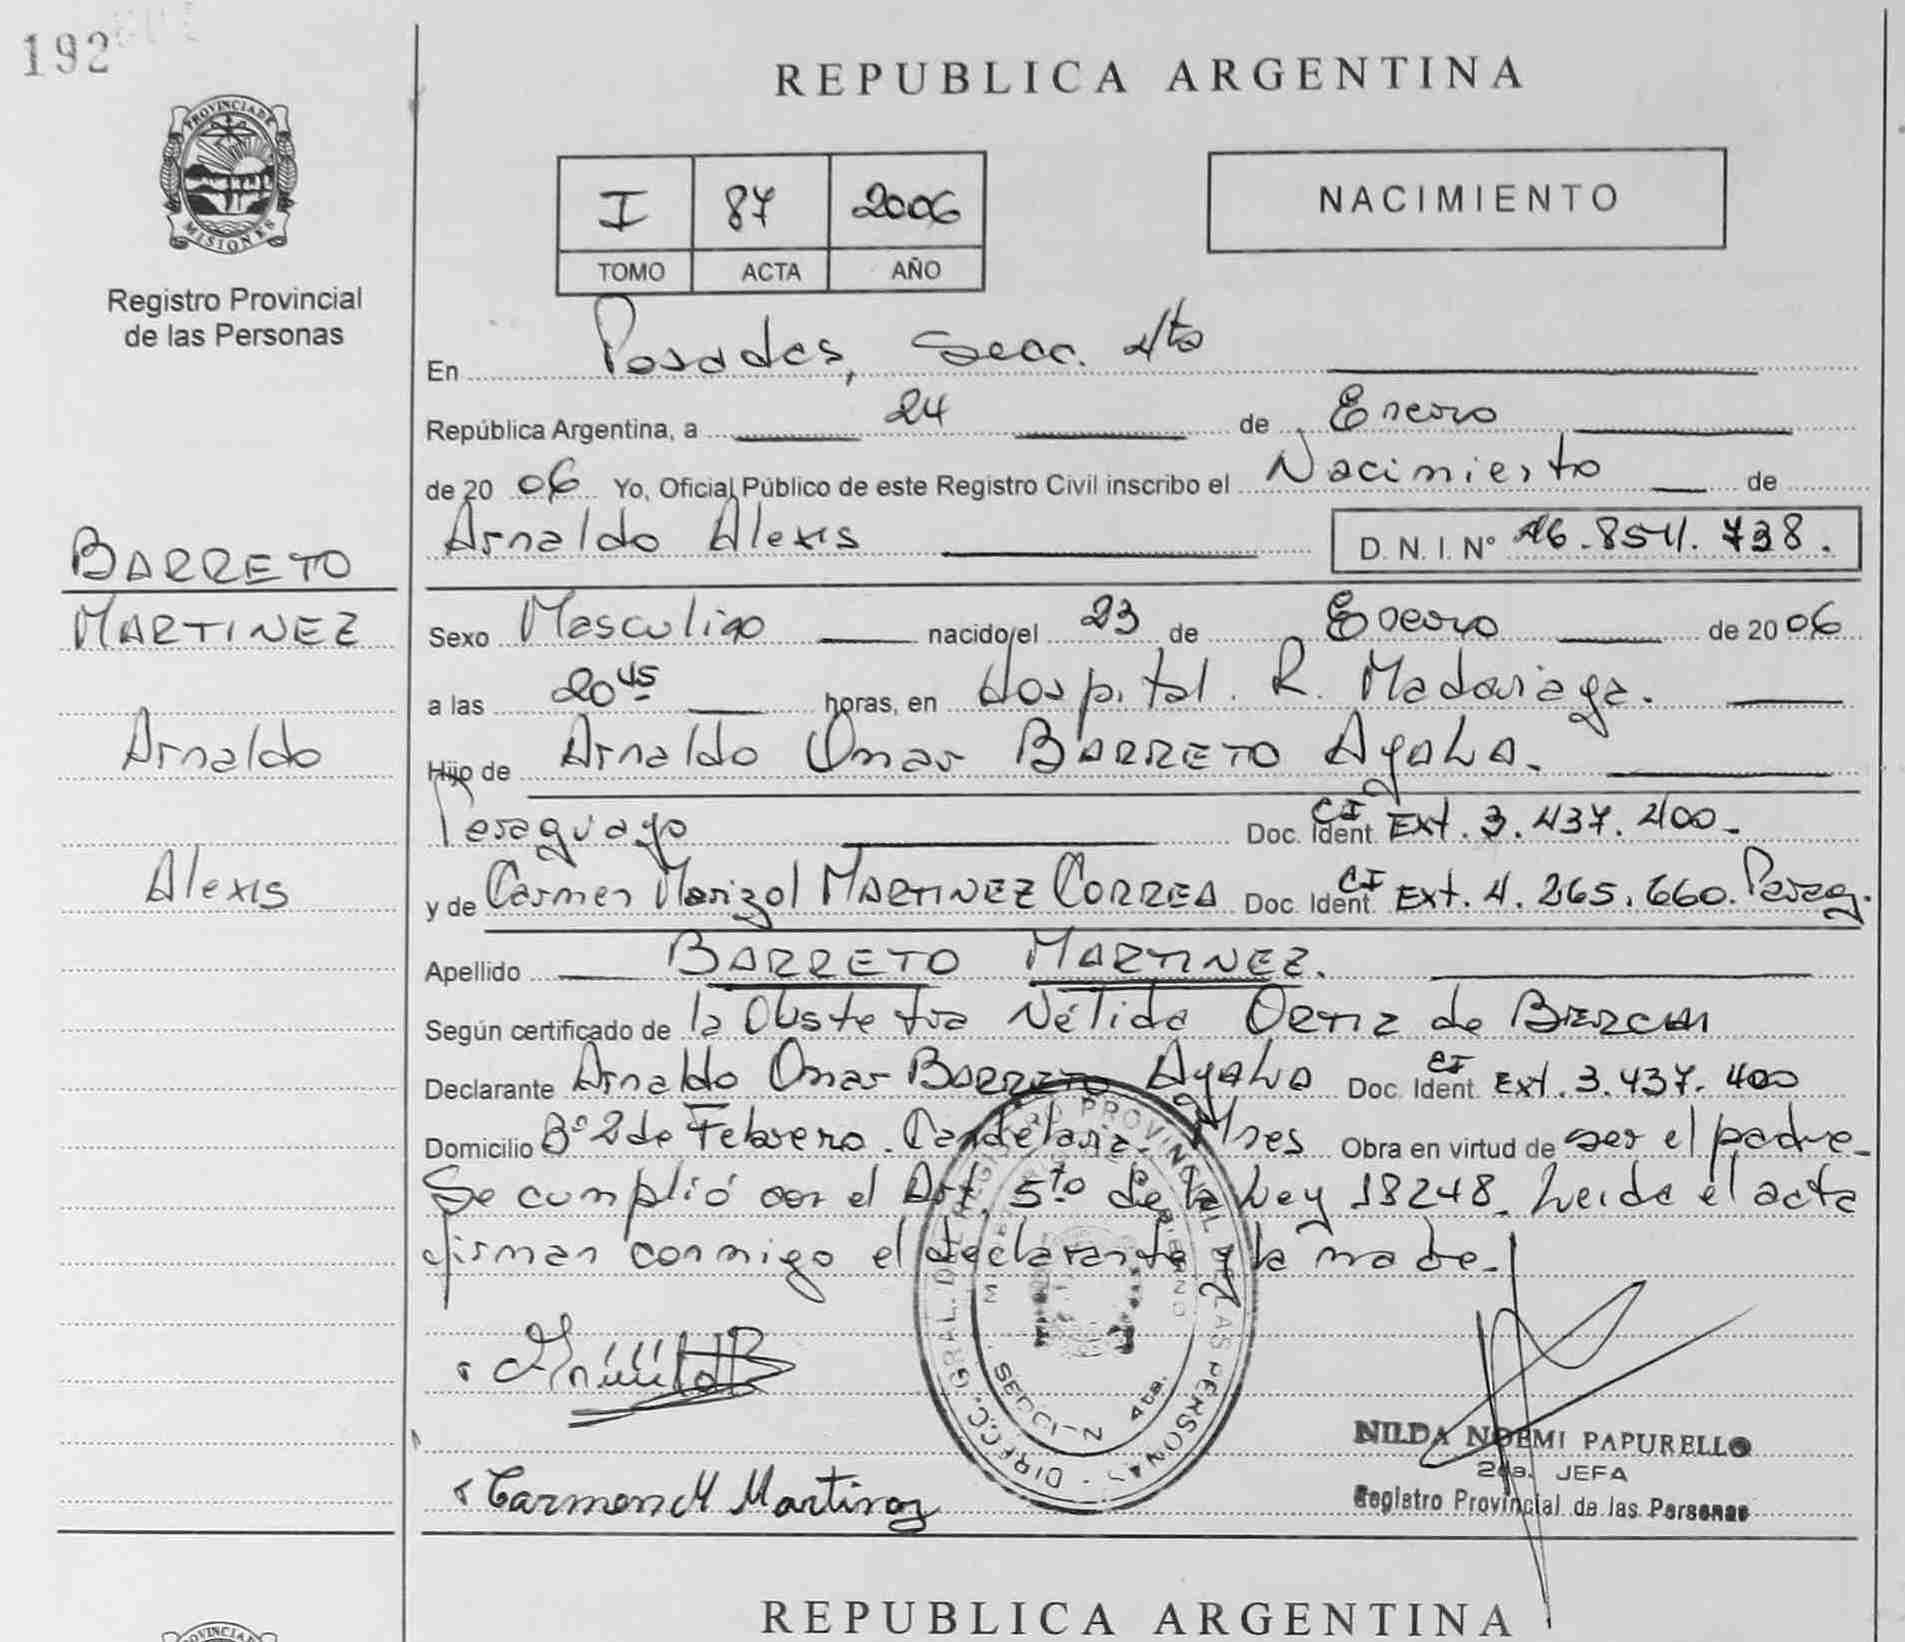 192
PROVINCIA DE
MISIONES
Registro Provincial
de las Personas
REPUBLICA ARGENTINA
I 87 2006
TOMO ACTA AÑO
NACIMIENTO
En Posadas, Secc. 4ta
República Argentina, a 24 de Enero
de 2006 Yo, Oficial Público de este Registro Civil inscribo el Nacimiento de
Arnaldo Alexis D. N. I. N° 46.854.738.
BARRETO
MARTINEZ
Arnaldo
Alexis
Sexo Masculino nacido el 23 de Enero de 2006
a las 20 45 horas, en Hospital. R. Madariaga.
Hijo de Arnaldo Omar BARRETO AyaLA.
Paraguayo Doc. Ident. CI Ext. 3.437.400-
y de Carmen Marizol MARTINEZ CORREA Doc. Ident. CI Ext. 4.265.660. Parag.
Apellido BARRETO MARTINEZ.
Según certificado de la Obstetra Nélida ORTIZ de
Declarante Arnaldo Omar BARRETO AyaLA Doc. Ident. CI Ext. 3.437.400
Domicilio B° 2 de Febrero. Candelaria. Mnes Obra en virtud de ser el padre-
Se cumplió con el Art. 5to de la Ley 18248. Leida el acta
firman conmigo el declarante y la madre.-
DIRECC. GRAL. DEL REGISTRO PROVINCIAL DE LAS PERSONAS
MINISTERIO DE GOBIERNO
SECCION 4ta.
Carmen M Martinez
NILDA NOEMI PAPURELLO
2da. JEFA
Registro Provincial de las Personas
REPUBLICA ARGENTINA